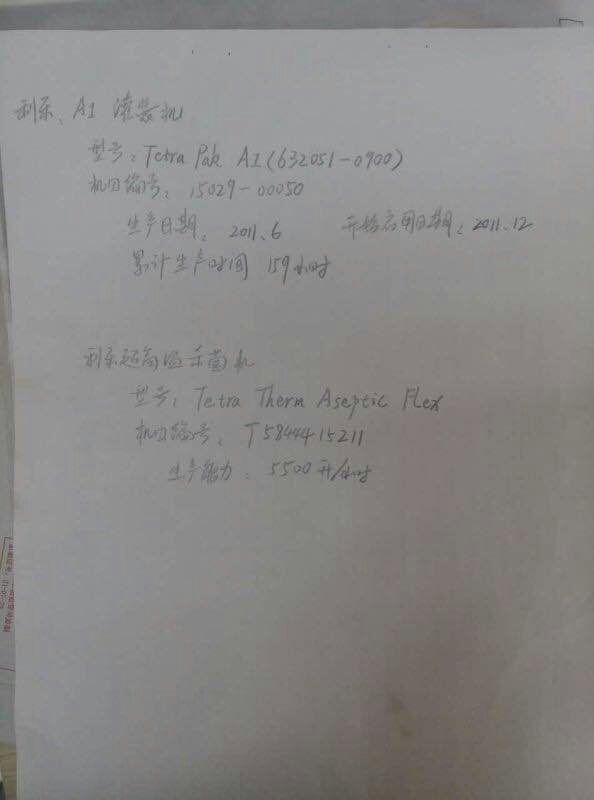 利乐、A1 灌装机
型号：Tetra Pak A1(632051-0900)
机口编号：15029-00050
生产日期：2011.6 开始启用日期：2011.12
累计生产时间 159小时
利乐超高温杀菌机
型号：Tetra Therm Aseptic Flex
机口编号：T5844415211
生产能力：5500升/小时